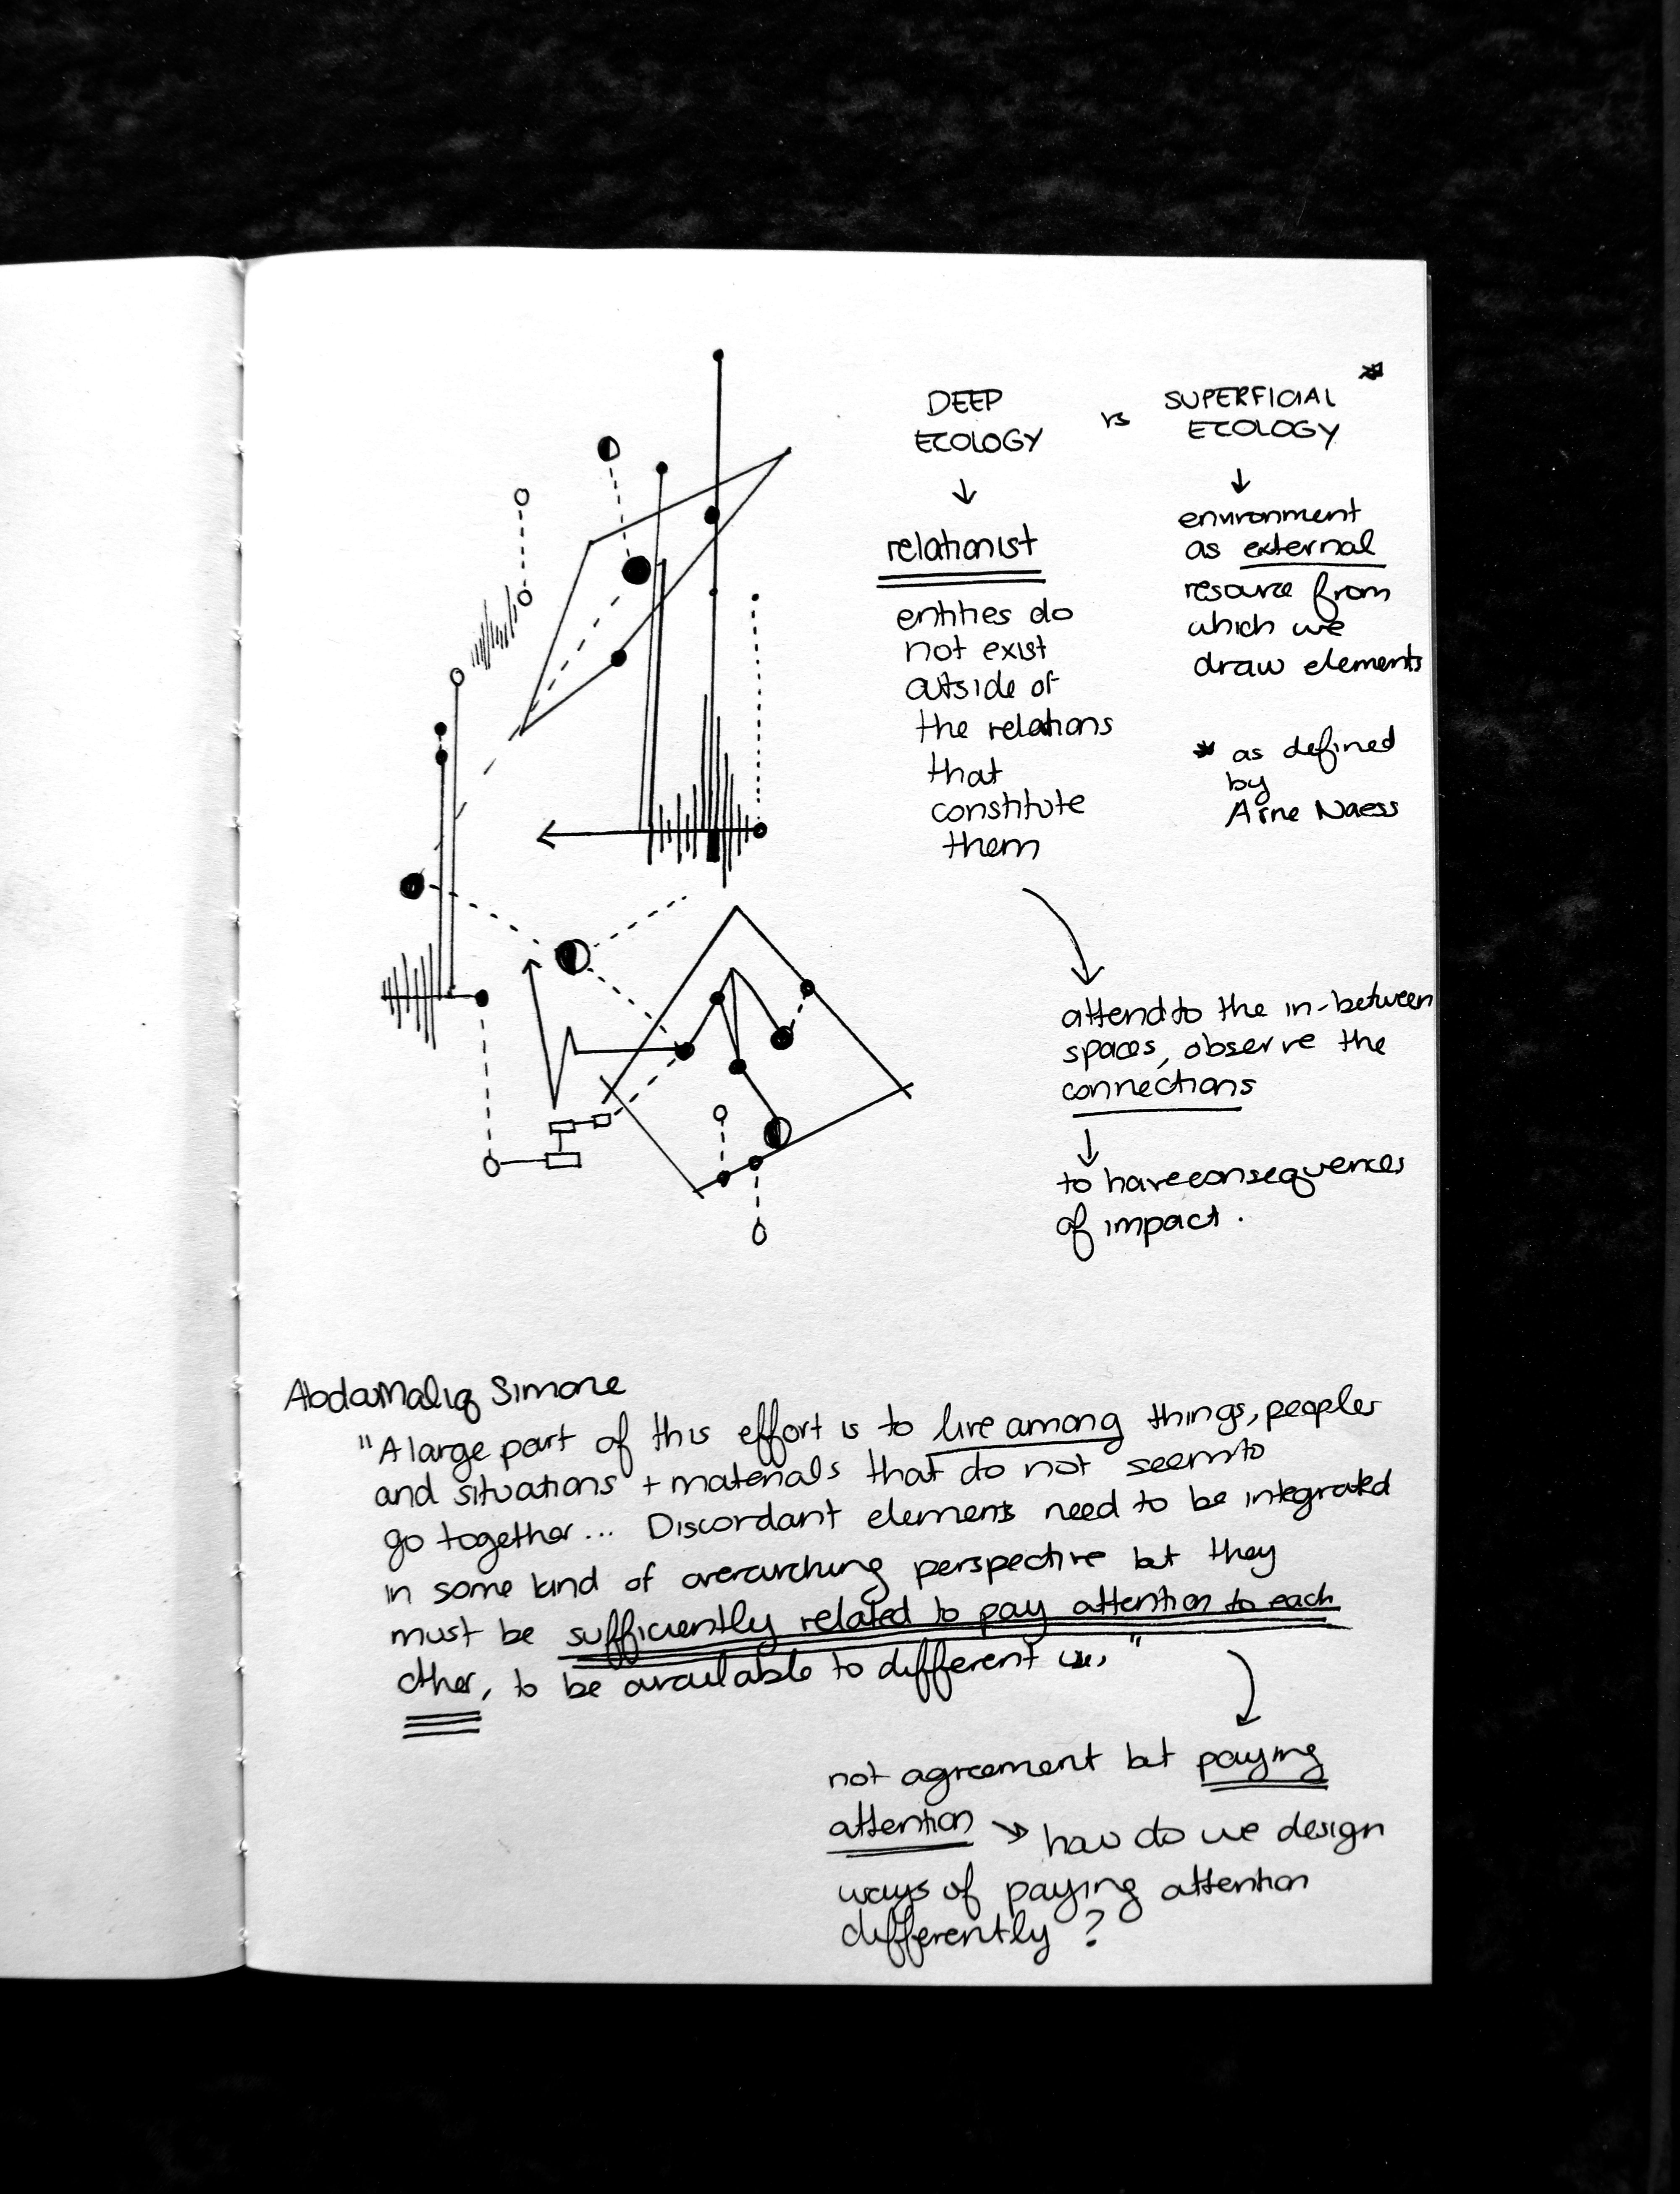 DEEP
ECOLOGY
vs
SUPERFICIAL *
ECOLOGY
↓
relationist
entities do
not exist
outside of
the relations
that
constitute
them
↓
environment
as external
resource from
which we
draw elements
* as defined
by
Arne Naess
attend to the in-between
spaces, observe the
connections
↓
to have consequences
of impact.
AbdouMaliq Simone
"A large part of this effort is to live among things, peoples
and situations + materials that do not seem to
go together... Discordant elements need to be integrated
in some kind of overarching perspective but they
must be sufficiently related to pay attention to each
other, to be available to different
not agreement but paying
attention → how do we design
ways of paying attention
differently?